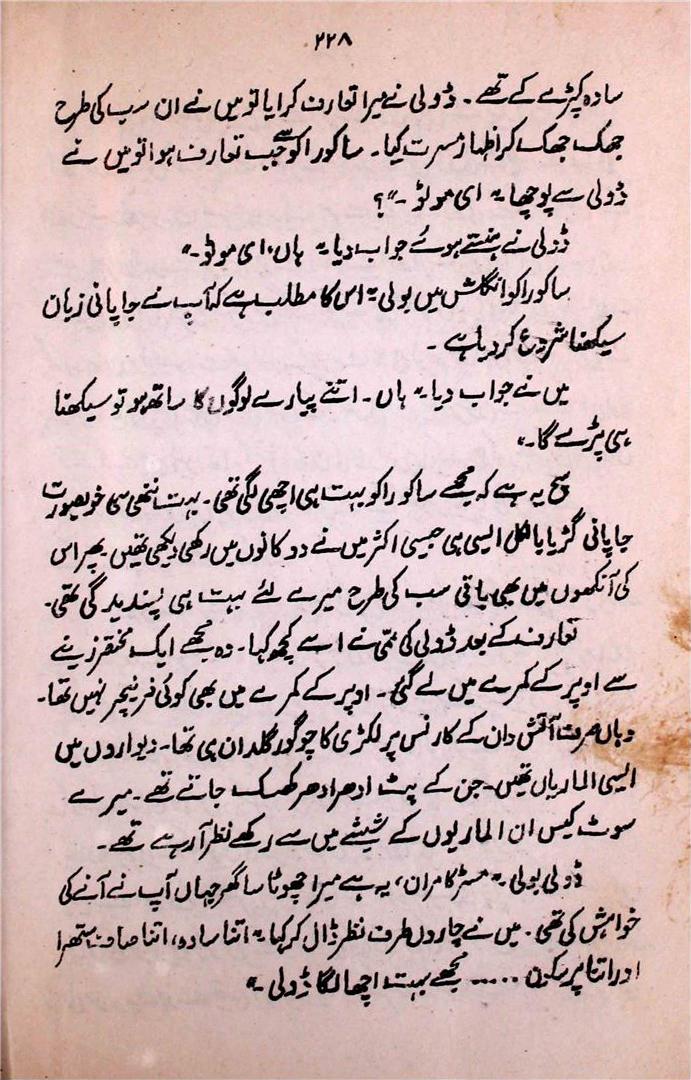 ۲۲۸
سادہ کپڑے کے تھے۔ ڈولی نے میرا تعارف کرایا تو میں نے ان سب کی طرح
جھک جھک کر اظہار مسرت کیا۔ ساکورا کو سے جب تعارف ہوا تو میں نے
ڈولی سے پوچھا "ای موٹو۔"؟
ڈولی نے ہنستے ہوئے جواب دیا "ہاں، ای موٹو۔"
ساکورا کو انگلش میں بولی "اس کا مطلب ہے کہ آپ نے جاپانی زبان
سیکھنا شروع کر دیا ہے۔
میں نے جواب دیا "ہاں۔ اتنے پیارے لوگوں کا ساتھ ہو تو سیکھنا
ہی پڑے گا۔"
سچ یہ ہے کہ مجھے ساکورا کو بہت ہی اچھی لگی تھی۔ بہت ننھی سی خوبصورت
جاپانی گڑیا بالکل ایسی ہی جیسی اکثر میں نے دوکانوں میں رکھی دیکھی تھیں پھر اس
کی آنکھوں میں بھی باقی سب کی طرح میرے لئے بہت ہی پسندیدگی تھی۔
تعارف کے بعد ڈولی کی ممی نے اسے کچھ کہا۔ وہ مجھے ایک مختصر زینے
سے اوپر کے کمرے میں لے گئی۔ اوپر کے کمرے میں بھی کوئی فرنیچر نہیں تھا۔
وہاں صرف آتش دان کے کارنس پر لکڑی کا چوگور گلدان ہی تھا۔ دیواروں میں
ایسی الماریاں تھیں۔ جن کے پٹ ادھر ادھر کھسک جاتے تھے۔ میرے
سوٹ کیس ان الماریوں کے شیشے میں سے رکھے نظر آ رہے تھے۔
ڈولی بولی "مسٹر کامران، یہ ہے میرا چھوٹا سا گھر جہاں آپ نے آنے کی
خواہش کی تھی۔ میں نے چاروں طرف نظر ڈال کر کہا "اتنا سادہ، اتنا صاف ستھرا
اور اتنا پر سکون ..... مجھے بہت اچھا لگا ڈولی۔"